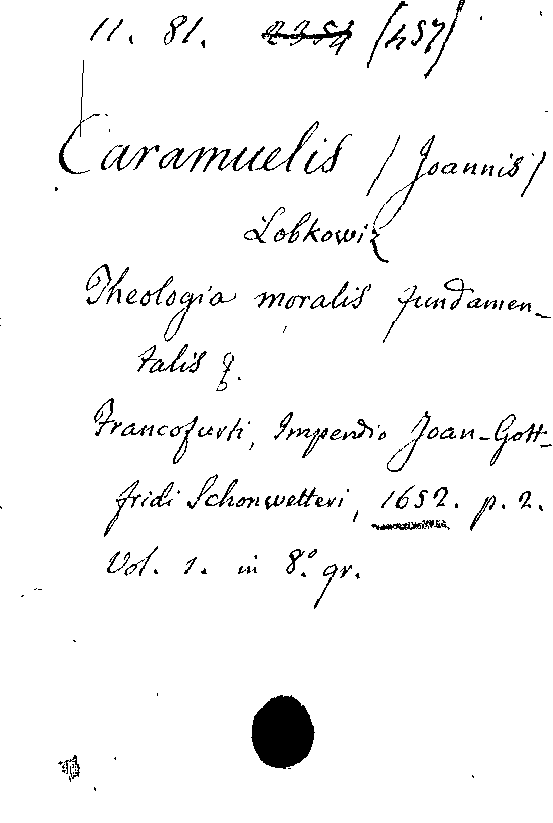 11. 81. 2354 (457)
Caramuelis / Joannis /
Lobkowiz
Theologia moralis fundamen-
talis
Francofurti, Impendio Joan-Gott-
fridi Schonwetteri, 1652. p. 2.
Vol. 1. in 8.° gr.